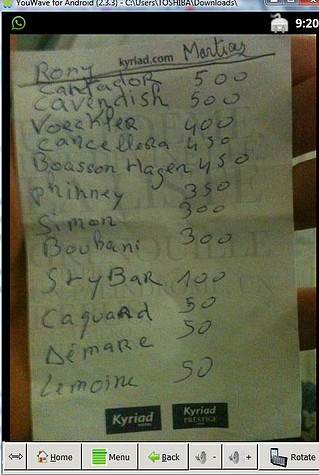 YouWave for Android (2.3.3) - C:\Users\TOSHIBA\Downloads\
9:20
Rony kyriad.com Martias
Cantador 500
Cavendish 500
Voeckler 400
Cancellera 450
Boasson Hagen 450
Phinney 350
Simon 300
Bouhani 300
StyBar 100
Caquard 50
Démare 50
Lemoine 50
Kyriad
HOTEL
Kyriad
PRESTIGE
HOTEL
Home Menu Back - + Rotate